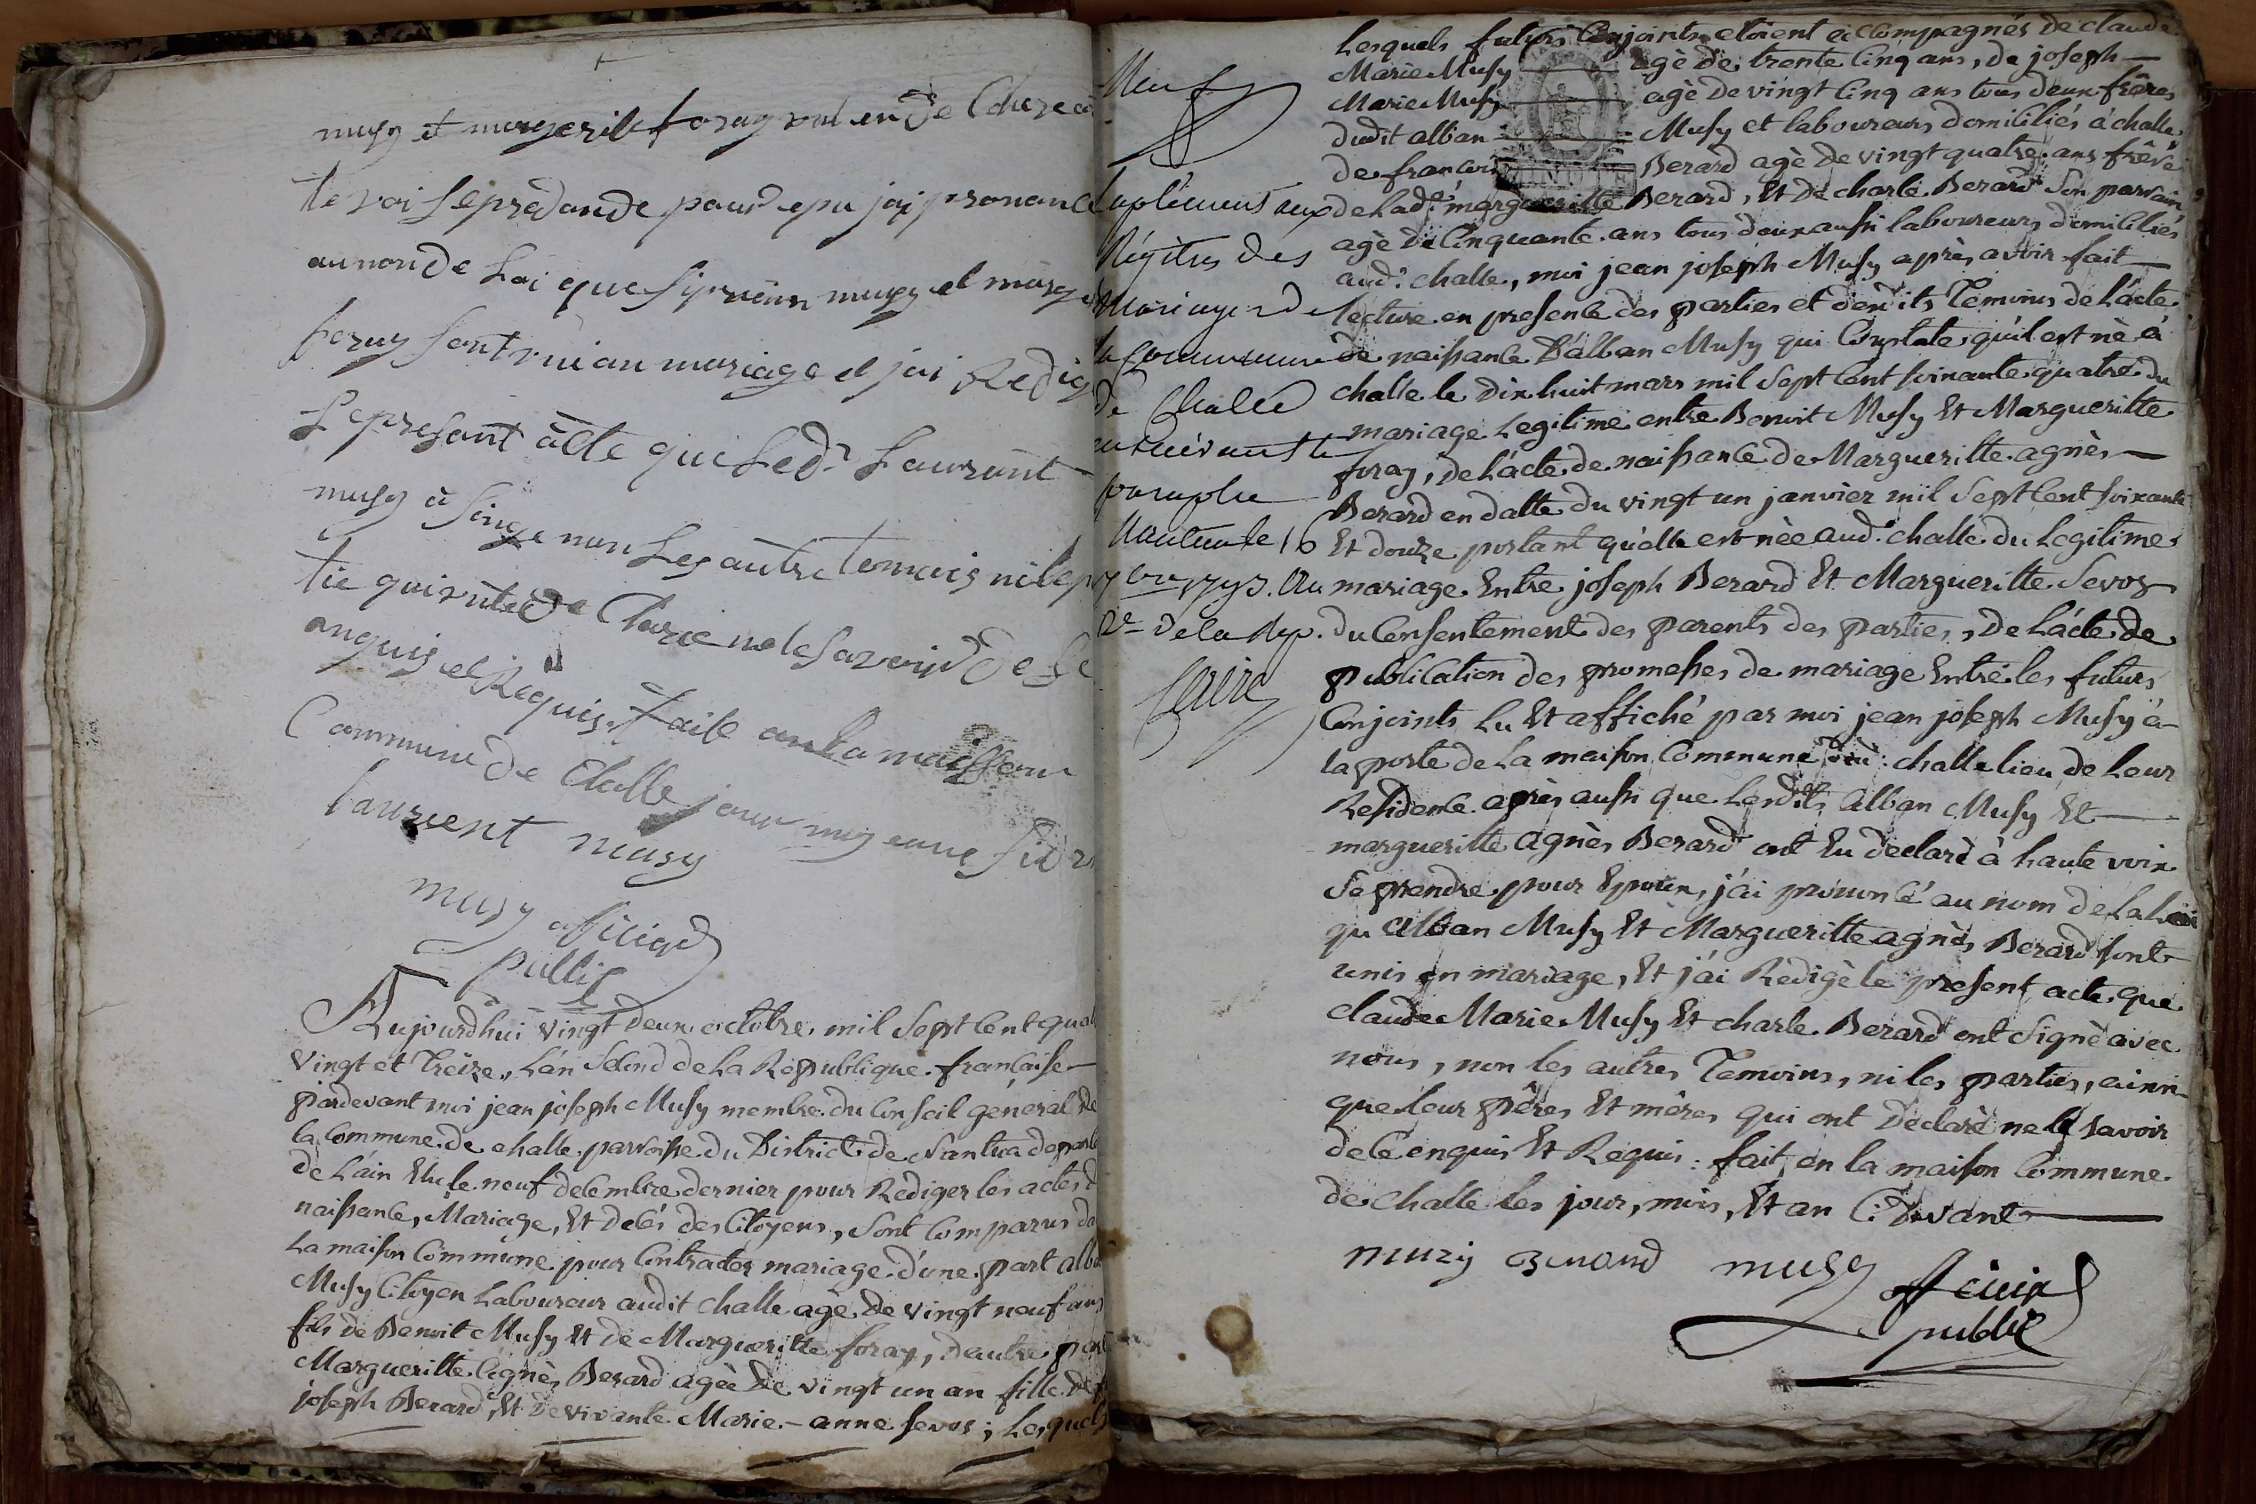 musy et margerite foray ont
te voi se prandande pour epu jai prononcé
au non de Loi que musy et marg
foray sont uni au mariage et jai Redig
Le presant acte que Led. Laurant
musy a singe non Les autre temoins ni le p
tie qui ont de Clarie ne le savoird de Ce
anquis et Requis. faite an la maisson
Commune de Challe jour moy
laurent musy
musy officied
public
Aujourdhui vingt deux octobre mil Sept Cent quat
Vingt et Treize, L'an Second de La Republique francoise
pardevant moi jean joseph Musy membre du Conseil general de
la Commune de challe parroisse du District de Nantua departe
de L'ain Elu le neuf decembre dernier pour Rediger les actes d
naissance, Mariage, Et Décés des Citoyens, Sont Comparus da
La maison Commune pour Contracter mariage. d'une part alba
Musy Citoyen Laboureur audit challe agé de vingt neuf ans
fils de Benoit Musy Et de Margueritte foray, d'autre part
Margueritte agnès Berard agée de vingt un an fille de
joseph Berard, Et De vivante Marie - anne Sevoz ; Lesquels
Lesquels futurs Conjoints etoient accompagnés de claude
Marie Musy agé de trente Cinq ans, de joseph
Marie Musy agé de vingt Cinq ans tous deux frères
dudit alban Musy et laboureurs domiciliés a challe
de francois Berard agé de vingt quatre ans frère
de Lade margueritte Berard, Et de charle Berard Son parrain
agé de Cinquante ans tous deux aussi laboureurs domiciliés
aud. challe, moi jean joseph Musy après avoir fait
lecture en presence des parties et desdits Temoins de L'acte
de naissance D'alban Musy qui Constate qu'il est né à
challe le Dix huit mars mil Sept Cent Soixante quatre du
mariage Legitime entre Benoit Musy Et Margueritte
foray, de L'acte de naissance de Margueritte agnès
Berard en datte du vingt un janvier mil Sept Cent Soixante
Et douze portant quelle est née aud. challe du Legitime
mariage Entre joseph Berard Et Margueritte Sevoz
du Consentement des parents des parties, de L'acte de
publication des promesses de mariage Entre les futurs
Conjoints Lu Et affiché par moi jean joseph Musy à
la porte de La maison Commune dud. challe lieu de Leur
Residence après aussi que Lesdits alban Musy Et
margueritte agnès Berard ont Eu declaré à haute voix
Se prendre pour Epoux, j'ai prononcé au nom de La Loi
qu'alban Musy Et Margueritte agnès Berard sont
unis en mariage, Et j'ai Redigé le present acte que
claude Marie Musy Et charle Berard ont Signé avec
nous, non les autres Temoins, ni les parties, ainsi
que leur pères Et mères qui ont Declaré ne le savoir
de Ce enquis Et Requis : fait en la maison Commune
de challe les jour, mois, Et an Ci devant
muzy musy officier
public
Neuf
Suplement aux
Régitres des
Mariages de
la Commune
de Challe
paraphé
Nantua le 16
7bre 1793. An
2e de la Rep.